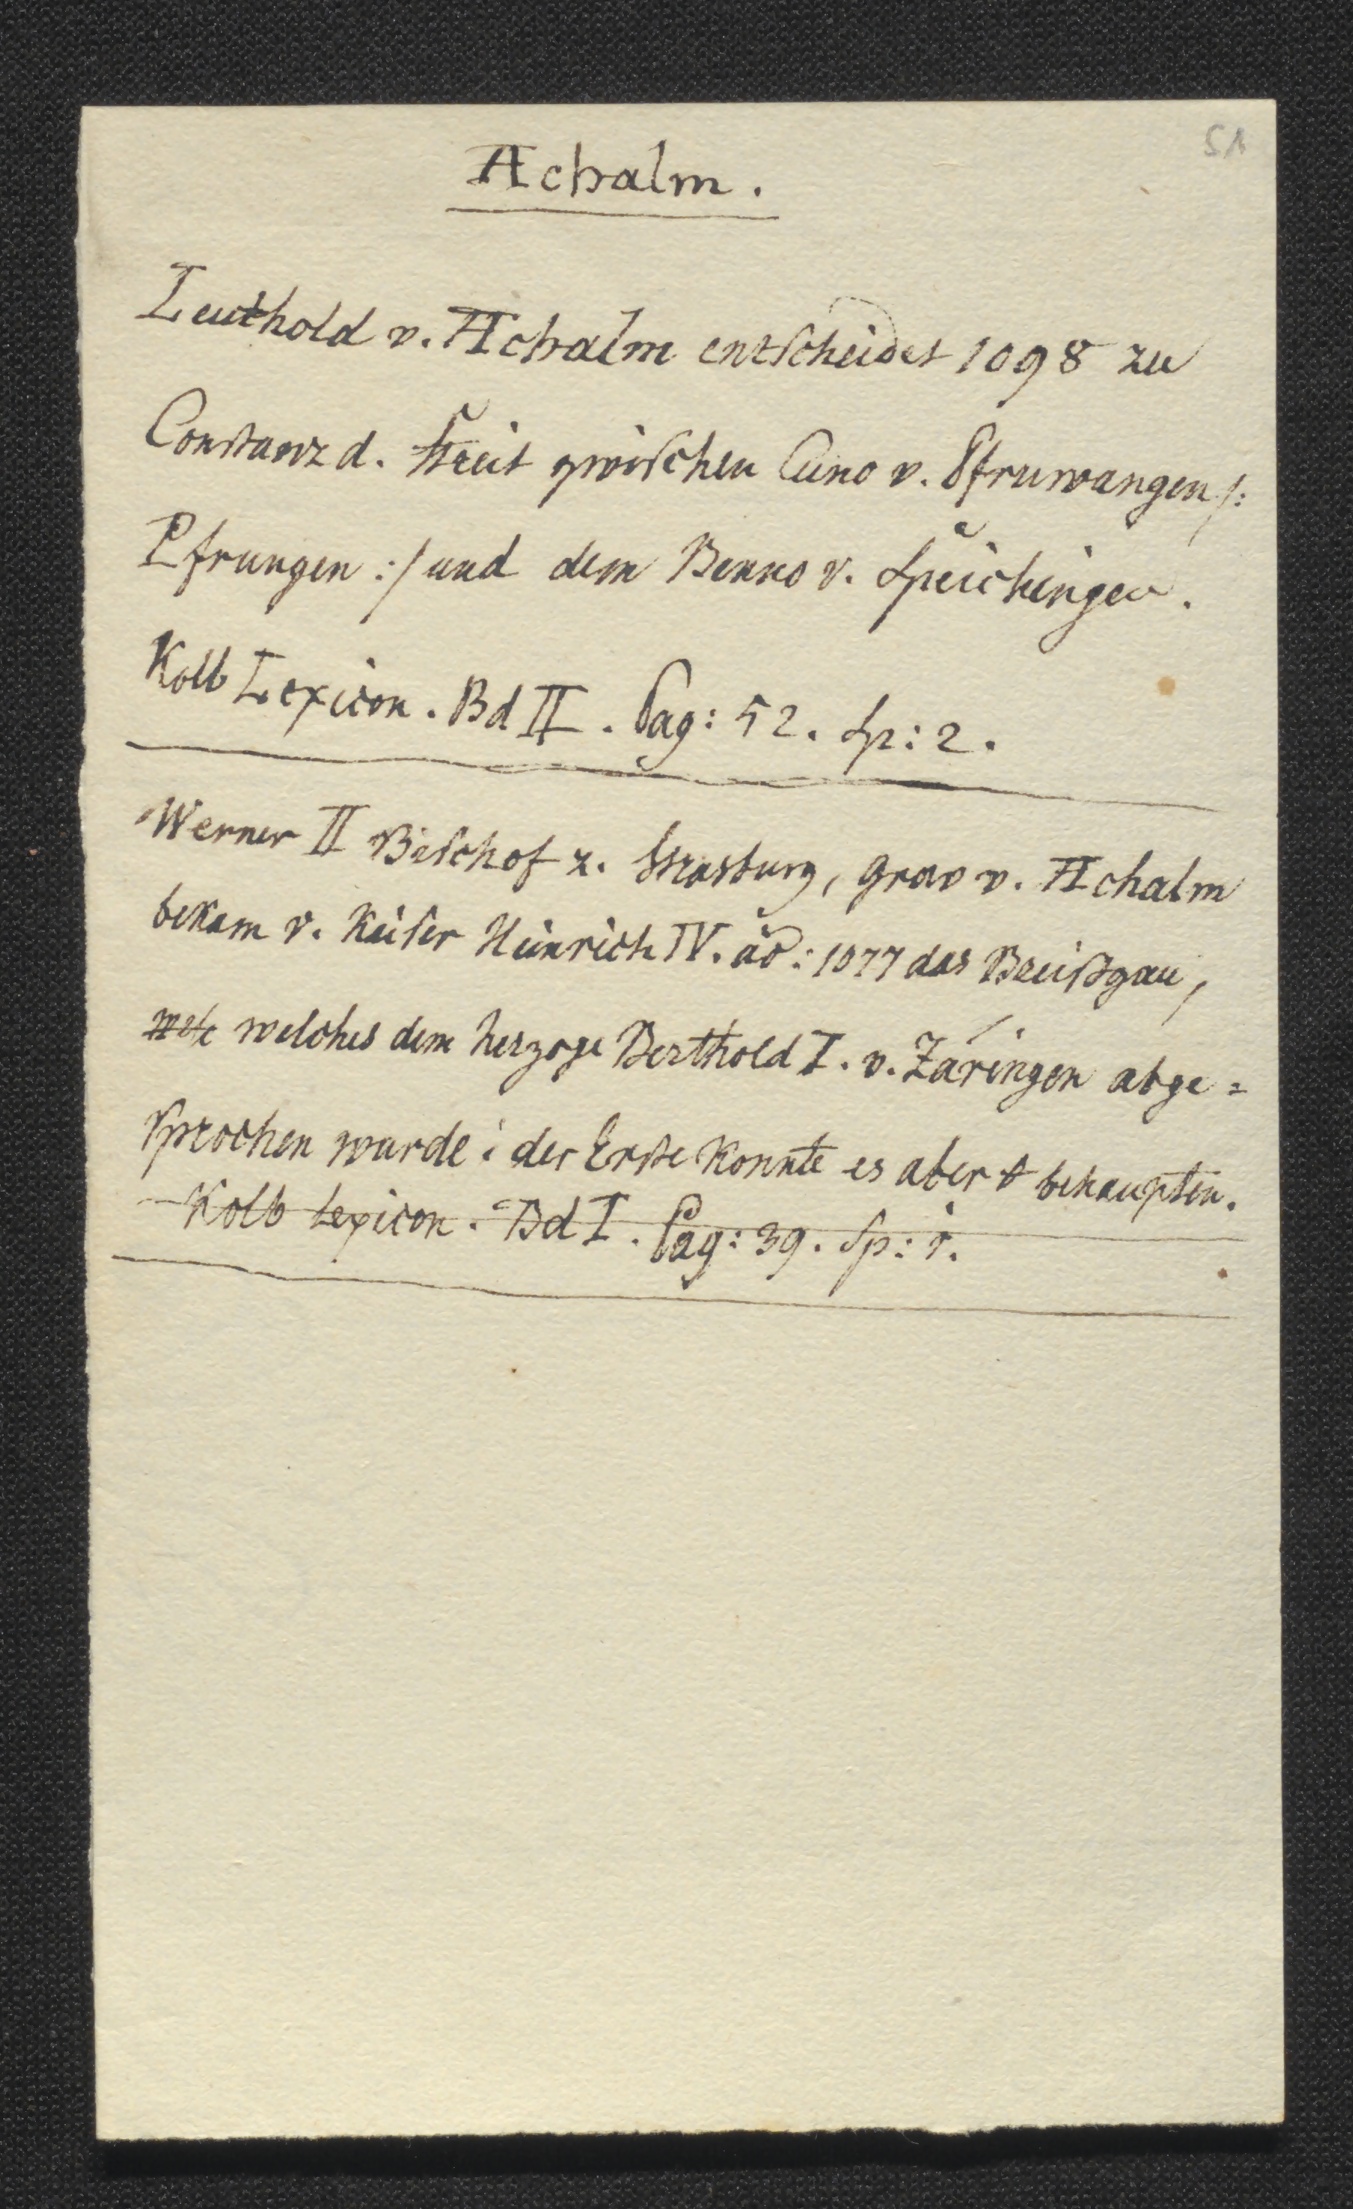 51
Achalm.
Leuthold v. Achalm entscheidet 1098 zu
Constanz d. Streit zwischen Cuno v. Pfruwangen /:
Pfrungen :/ und dem Benno v. Speichingen.
Kolb Lexicon. Bd II. Pag: 52. Sp: 2.
Werner II Bischof z. Strasburg, Grav v. Achalm
bekam v. Keiser Heinrich IV. ão: 1077 das Breißgau,
welc welches dem Herzoge Berthold I. v. Zäringen abge=
sprochen wurde: der Erste konnte es aber behaupten.
Kolb Lexicon. Bd I. Pag: 39. Sp: 1.